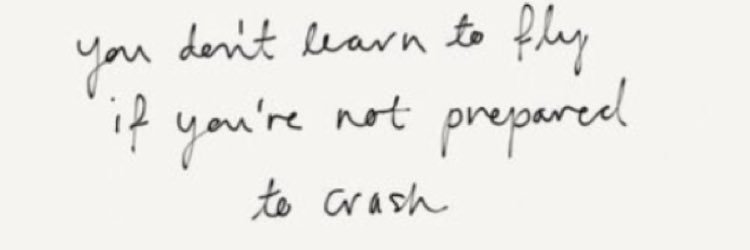 you don't learn to fly
if you're not prepared
to crash